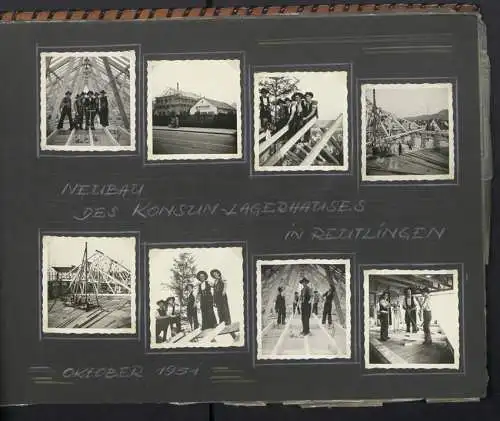 NEUBAU
DES KONSUM-LAGERHAUSES
IN REUTLINGEN
OKTOBER 1951